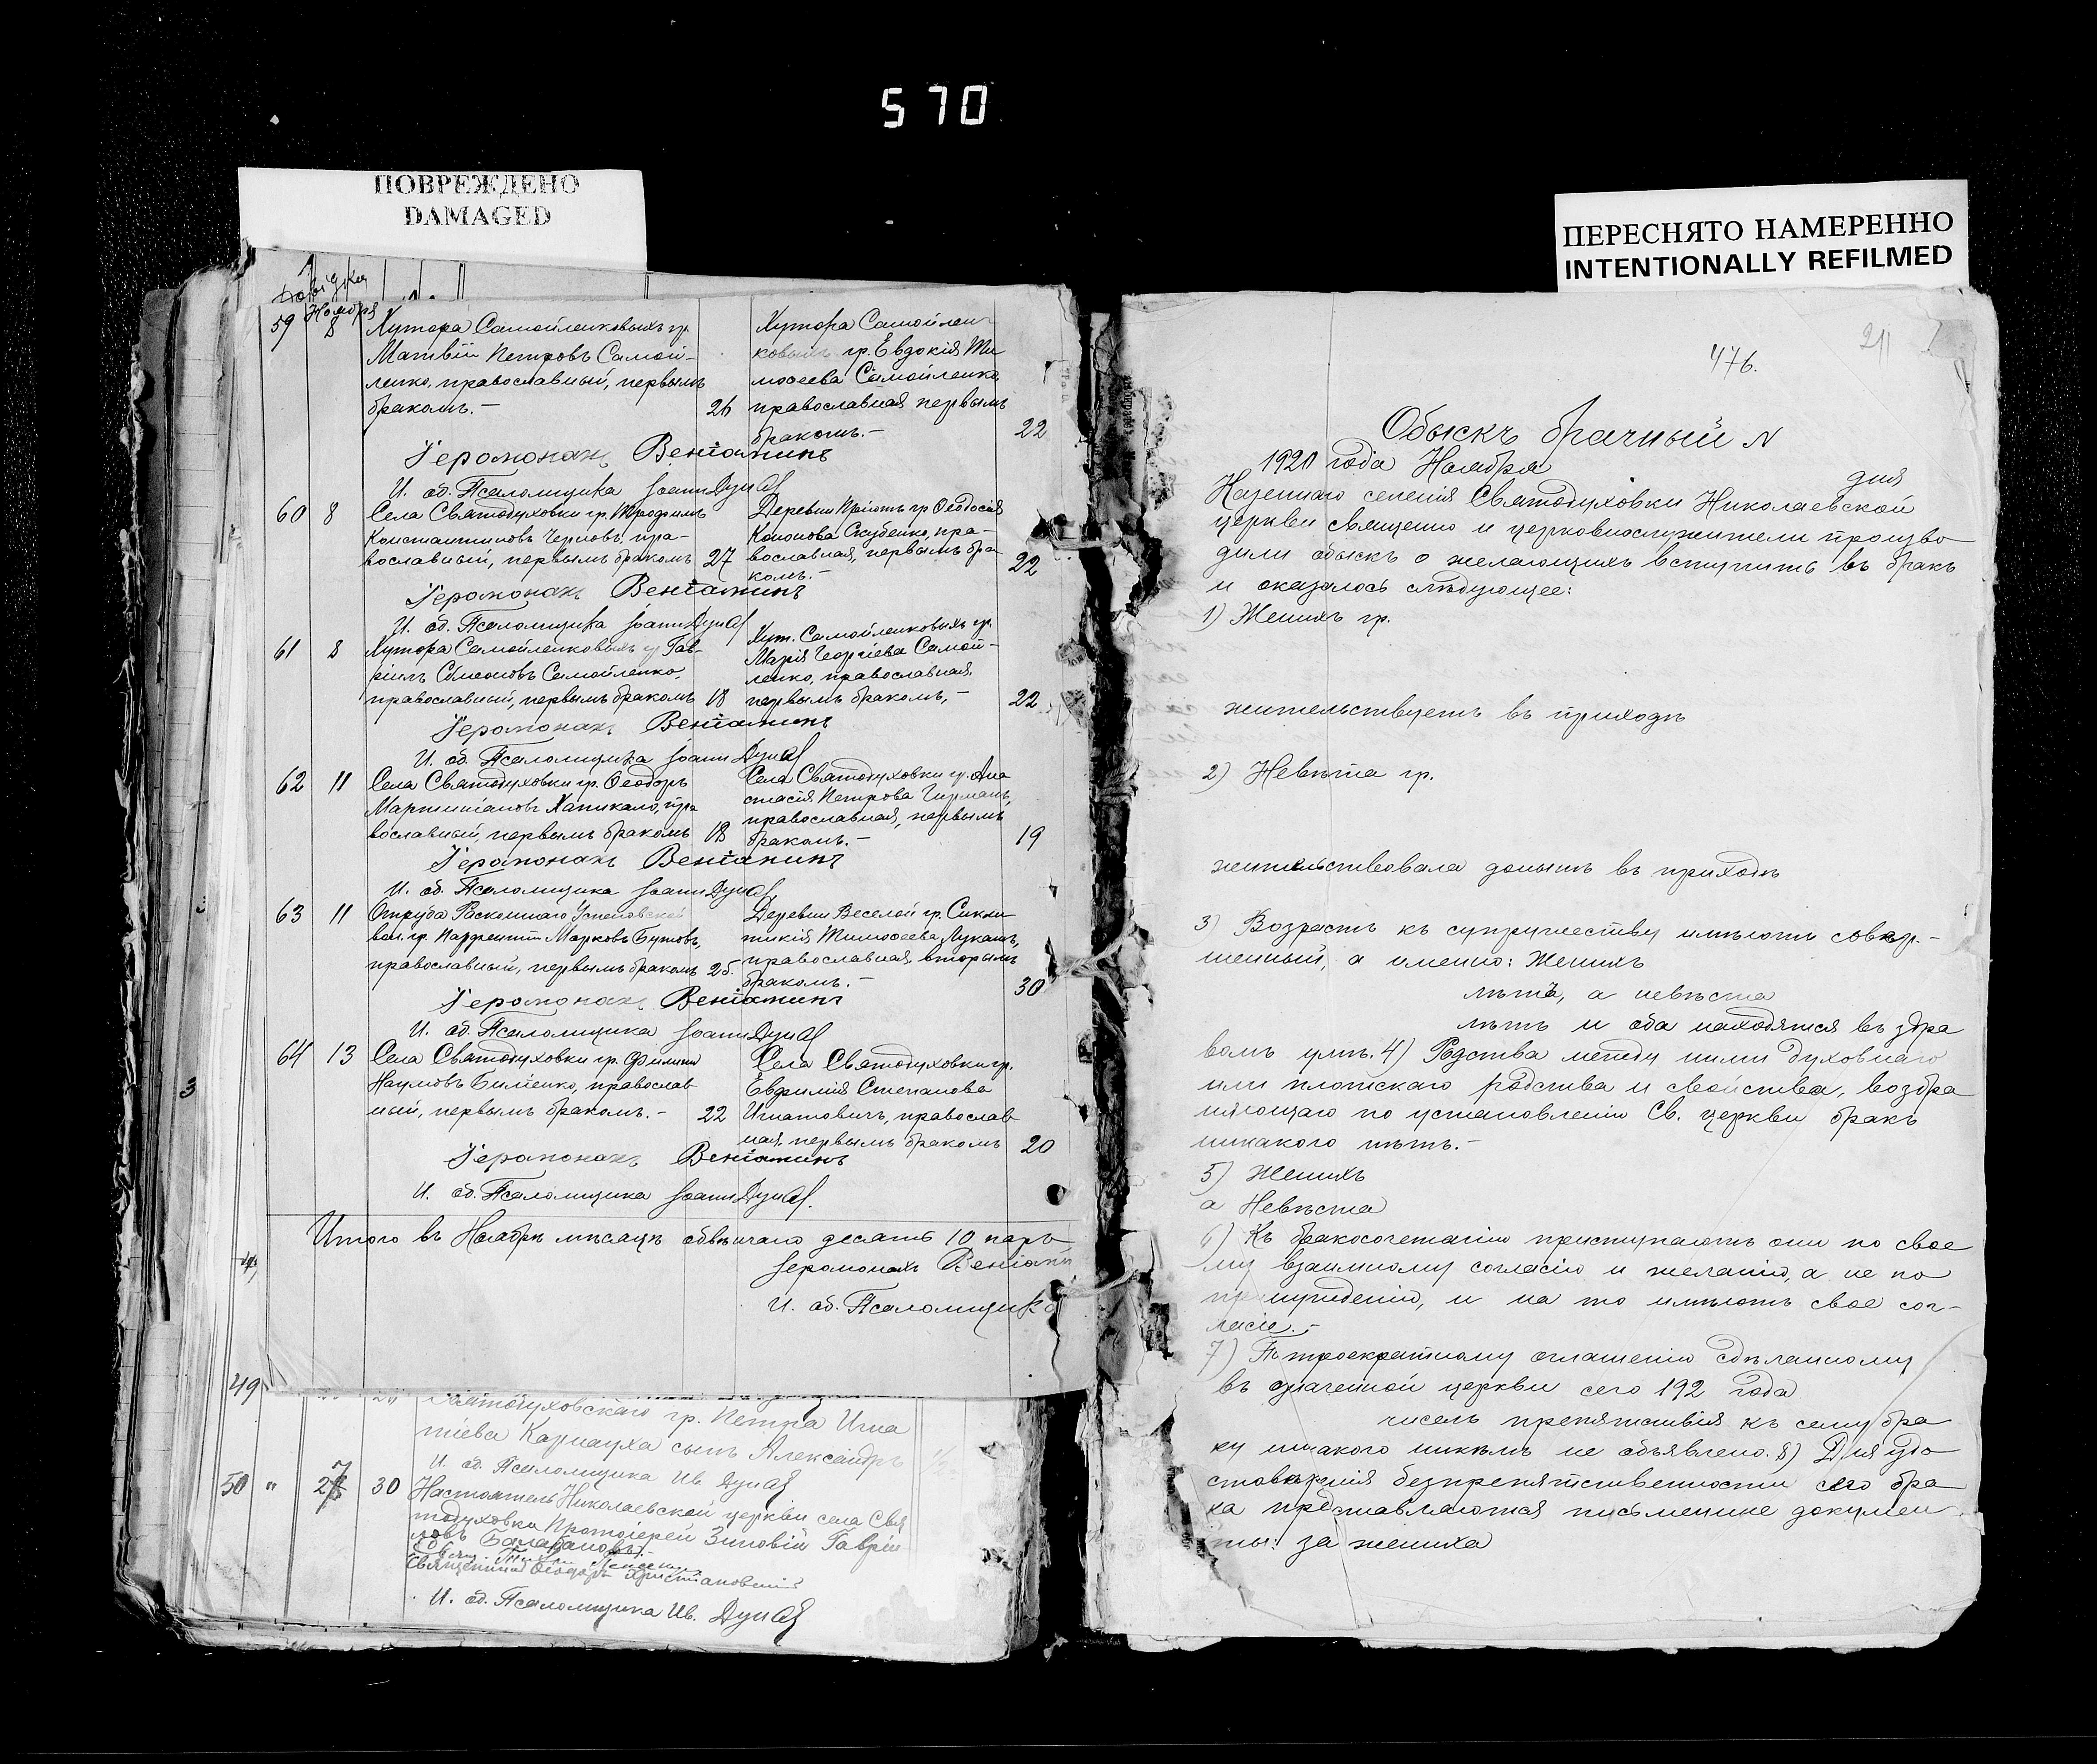 570
ПОВРЕЖДЕНО
DAMAGED
ПЕРЕСНЯТО НАМЕРЕННО
INTENTIONALLY REFILMED
Ноября
59 8 Хутора Самойленковыхъ гр.
Матвій Петровъ Самой-
ленко, православный, первымъ
бракомъ.- 26
Хутора Самойлен-
ковыхъ гр. Евдокія Ти
мофеева Самойленко,
православная первымъ
бракомъ.- 22
Іеромонахъ Веніаминъ
И. об. Псаломщика Іоаннъ Дунай
60 8 Села Святодуховки гр. Трофимъ
Константиновъ Черновъ, пра-
вославный, первымъ бракомъ 27
Деревни Пріютъ гр. Феодосія
Кононова Скубенко, пра-
вославная, первымъ бра
комъ.- 22
Іеромонахъ Веніаминъ
И. об. Псаломщика Іоаннъ Дунай
61 8 Хутора Самойленковыхъ гр. Гав-
ріилъ Симеоновъ Самойленко,
православный, первымъ бракомъ 18
Хут. Самойленковыхъ гр.
Марія Георгіева Самой-
ленко, православная,
первымъ бракомъ,- 22
Іеромонахъ Веніаминъ
И. об. Псаломщика Іоаннъ Дунай
62 11 Села Святодуховки гр. Феодоръ
Мартиніановъ Хапикало, пра
вославный, первымъ бракомъ 18
Села Святодуховки гр. Ана
стасія Петрова
православная, первымъ
бракомъ.- 19
Іеромонахъ Веніаминъ
И. об. Псаломщика Іоаннъ Дунай
63 11 Отруба Успеновской
вол. гр. Парфентій Марковъ Бутовъ,
православный, первымъ бракомъ 25.
Деревни Веселой гр. Синкли
тикія Тимофеева Лукашъ,
православная, вторымъ
бракомъ.- 30
Іеромонахъ Веніаминъ
И. об. Псаломщика Іоаннъ Дунай
64 13 Села Святодуховки гр. Филиппъ
Наумовъ Билченко, православ
ный, первымъ бракомъ.- 22
Села Святодуховки гр.
Евфимія Степанова
Игнатовичъ, православ
ная, первымъ бракомъ 20
Іеромонахъ Веніаминъ
И. об. Псаломщика Іоаннъ Дунай.
Итого въ Ноябрѣ мѣсяцѣ обвѣнчано десять 10 паръ
Іеромонахъ Веніамин
И. об. Псаломщика
49
Святодуховскаго гр. Петра Игна
тіева Карнауха сынъ Александръ
И. об. Псаломщика Ив. Дунай
50 " 27 30 Настоятель Николаевской церкви села Свя
тодуховки Протоіерей Зиновій Гаврии
ловъ Балабановъ.
Священникъ Феодоръ
И. об. Псаломщика Ив. Дунай
211
476.
Обыскъ брачный N
1920 года Ноября дня
Казеннаго селенія Святодуховки Николаевской
церкви священно и церковнослужители произво
дили обыскъ о желающихъ вступить въ бракъ
и оказалось слѣдующее:
1) Женихъ гр.
жительствуетъ въ приходѣ
2) Невѣста гр.
жительствовала донынѣ въ приходѣ
3) Возрастъ къ супружеству имѣютъ совер-
шенный, а именно: Женихъ
лѣтъ, а невѣста
лѣтъ и оба находятся въ здра
вомъ умѣ. 4) Родства между ними духовнаго
или плотскаго родства и свойства, возбра
няющаго по установленію Св. церкви бракъ
никакого нѣтъ.-
5) Женихъ
а Невѣста
6) Къ бракосочетанію приступаютъ они по свое
му взаимному согласію и желанію, а не по
принужденію, и на то имѣютъ свое сог-
ласіе.-
7) По троекратному оглашенію сдѣланному
въ означенной церкви сего 192 года
чиселъ препятствія къ сему бра
ку никакого никѣмъ не объявлено. 8) Для удо
стоверенія безпрепятственности сего бра
ка представляются письменные докумен
ты: за жениха